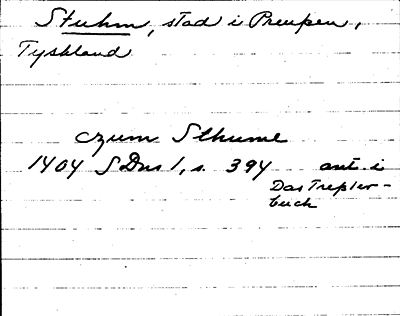 Stuhm, stad i Preuβen,
Tyskland
czum Sthume
1404 SDns 1, s. 394 ant. i
Das Treβler-
buch